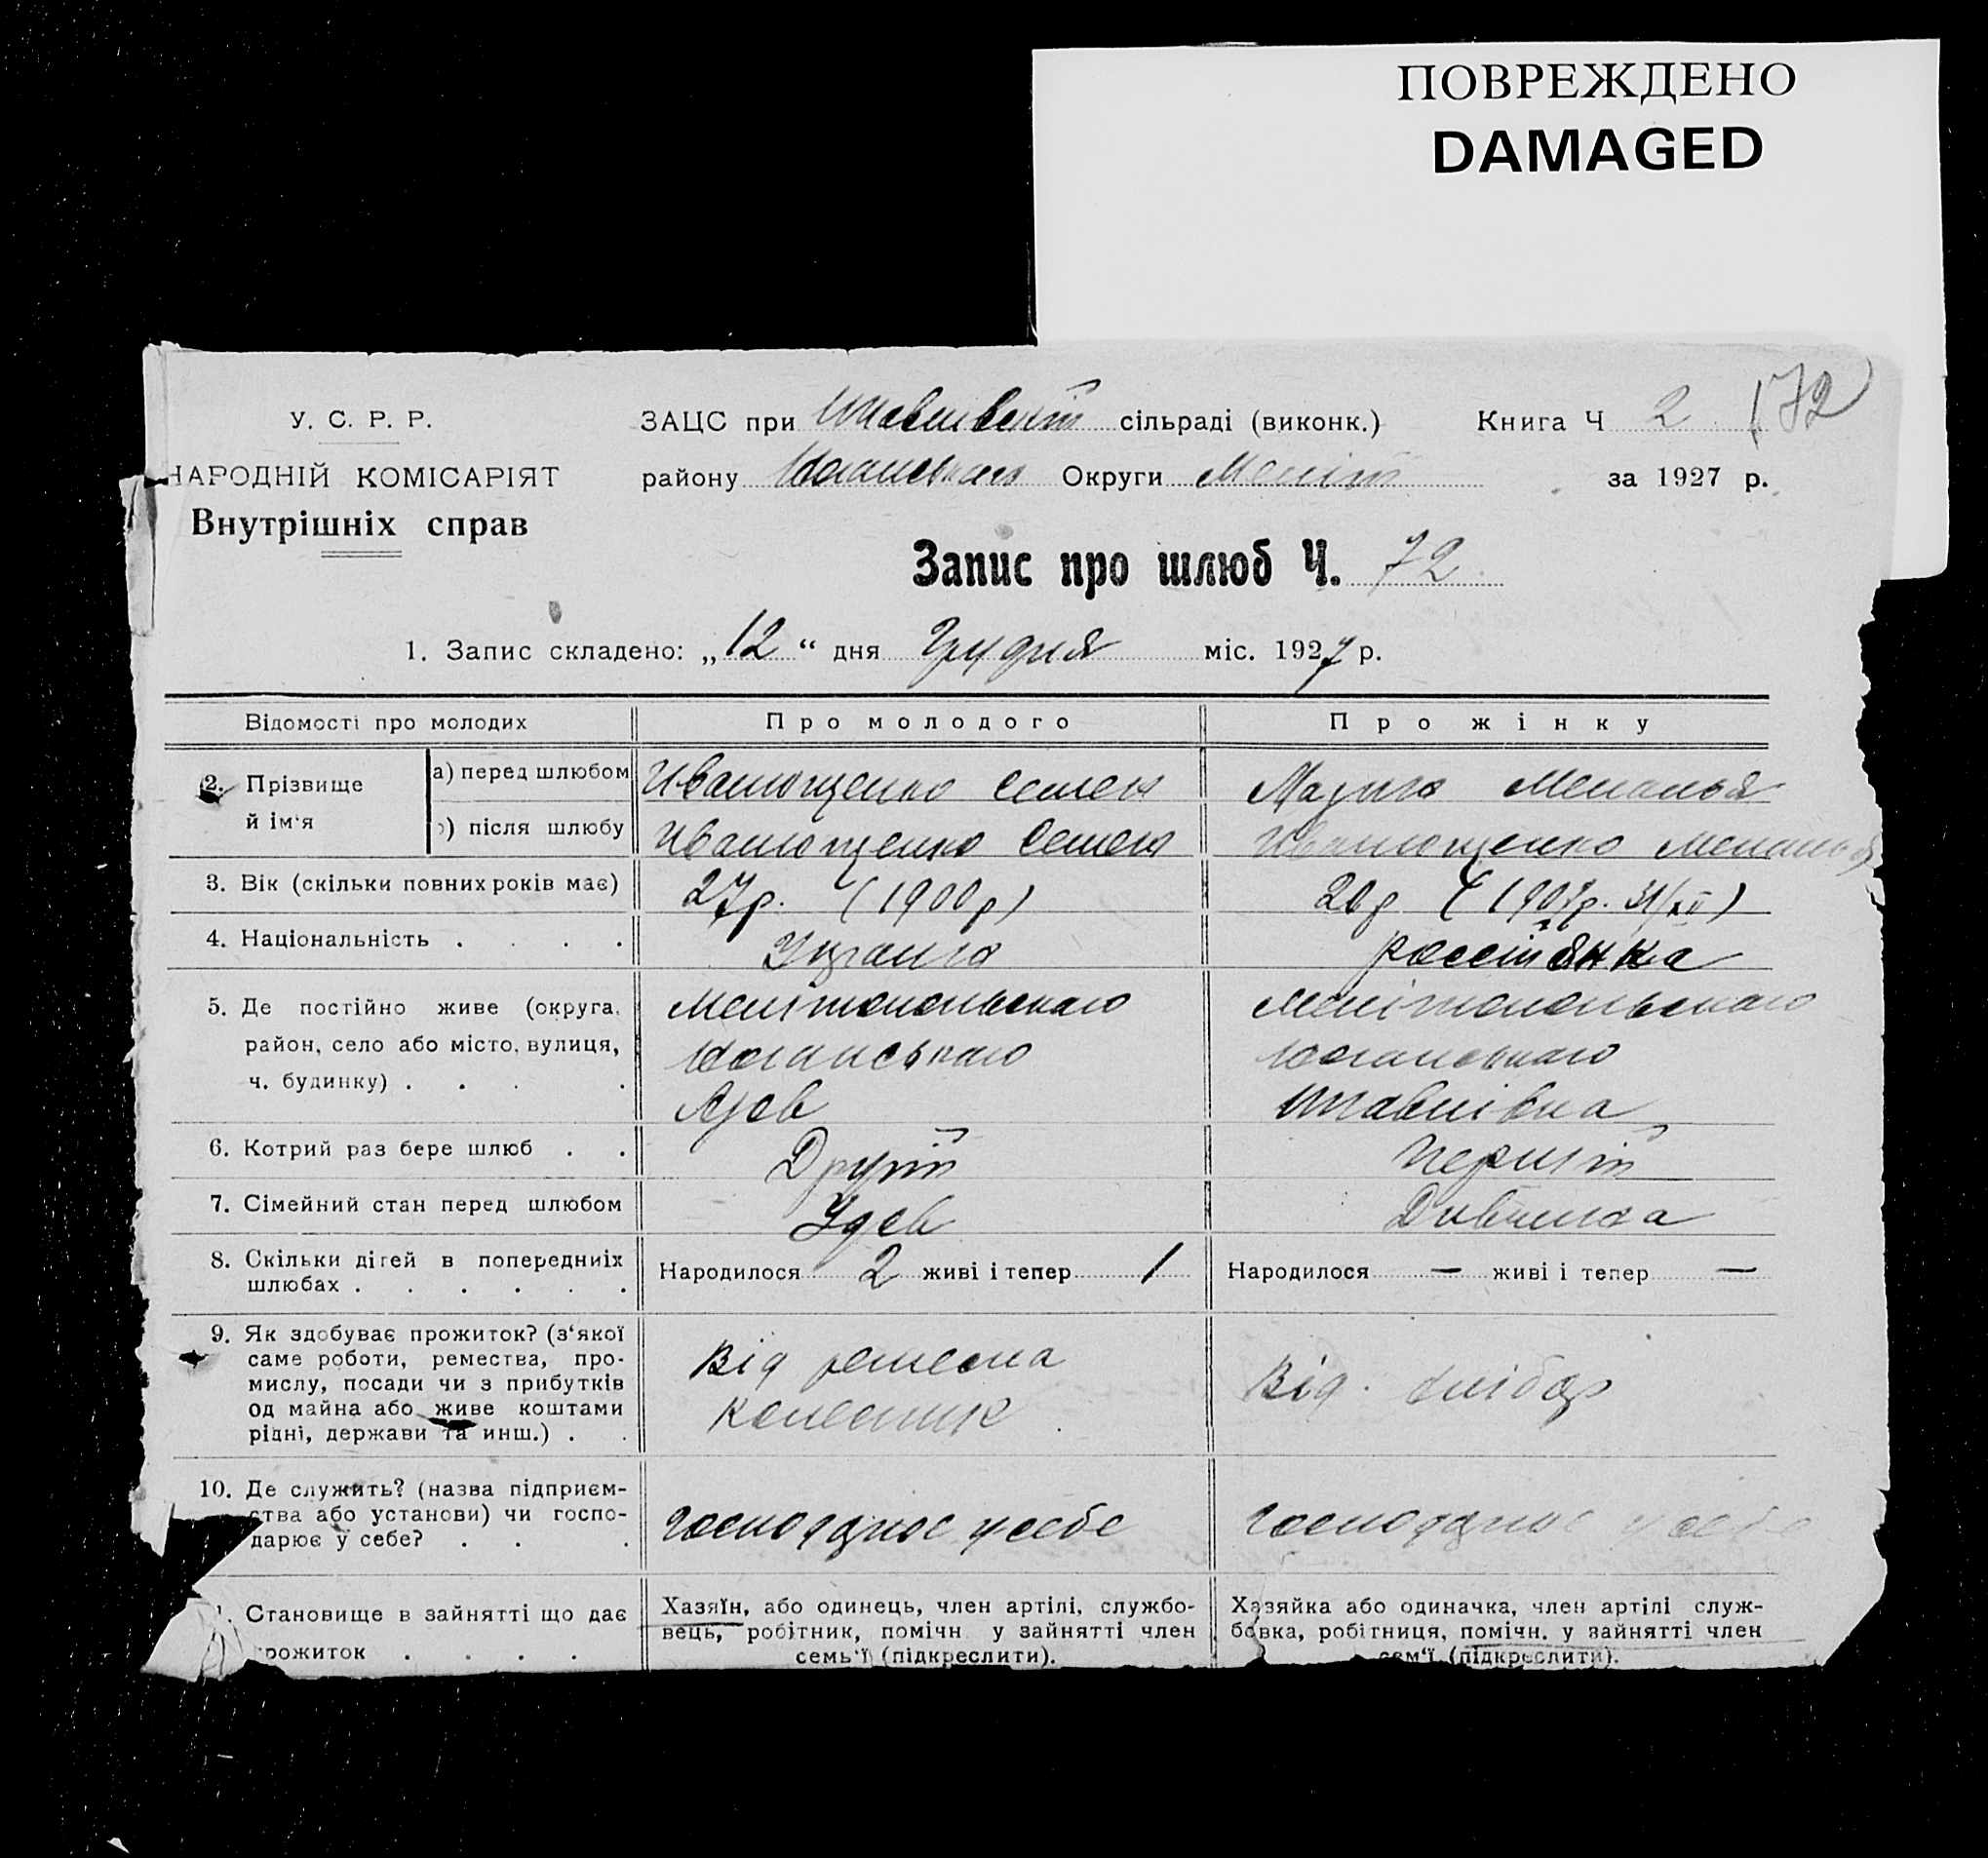 ПОВРЕЖДЕНО
DAMAGED
У. С. Р. Р.
НАРОДНІЙ КОМІСАРІЯТ
Внутрішніх справ
ЗАЦС при сільраді (виконк.) Книга Ч 2 172
району Округи Меліт за 1927 р.
Запис про шлюб Ч. 72
1. Запис складено: „12“ дня Грудня міс. 1927 р.
Відомості про молодих Про молодого Про жінку
2. Прізвище й ім‘я
а) перед шлюбом Иванющенко Семен Меланья
) після шлюбу Иванющенко Семен Иванющенко Меланья
3. Вік (скільки повних років має) 27р. (1900р) 20р (1907р. 31/XII)
4. Національність . . . .
5. Де постійно живе (округа,
район, село або місто, вулиця,
ч. будинку) . . . .
Мелітопольскаго
Азов
Мелітопольскаго
6. Котрий раз бере шлюб . . Другій Першій
7. Сімейний стан перед шлюбом Удов Дивчина
8. Скільки дітей в попередниіх
шлюбах . . . . . .
Народилося 2 живі і тепер 1
Народилося — живі і тепер —
9. Як здобуває прожиток? (з‘якої
саме роботи, ремества, про-
мислу, посади чи з прибутків
од майна або живе коштами
рідні, держави та инш.) . .
Від ремесла
колесник
Від. хлібор
10. Де служить? (назва підприєм-
ства або установи) чи госпо-
дарює у себе? . . .
Господарює у себе
Господарює у себе
. Становище в зайнятті що дає
рожиток . . . .
Хазяїн, або одинець, член артілі, службо-
вець, робітник, помічн у зайнятті член
семь‘ї (підкреслити).
Хазяйка або одиначка, член артілі служ-
бовка, робітниця, помічн. у зайнятті член
сем‘ї (підкреслити).